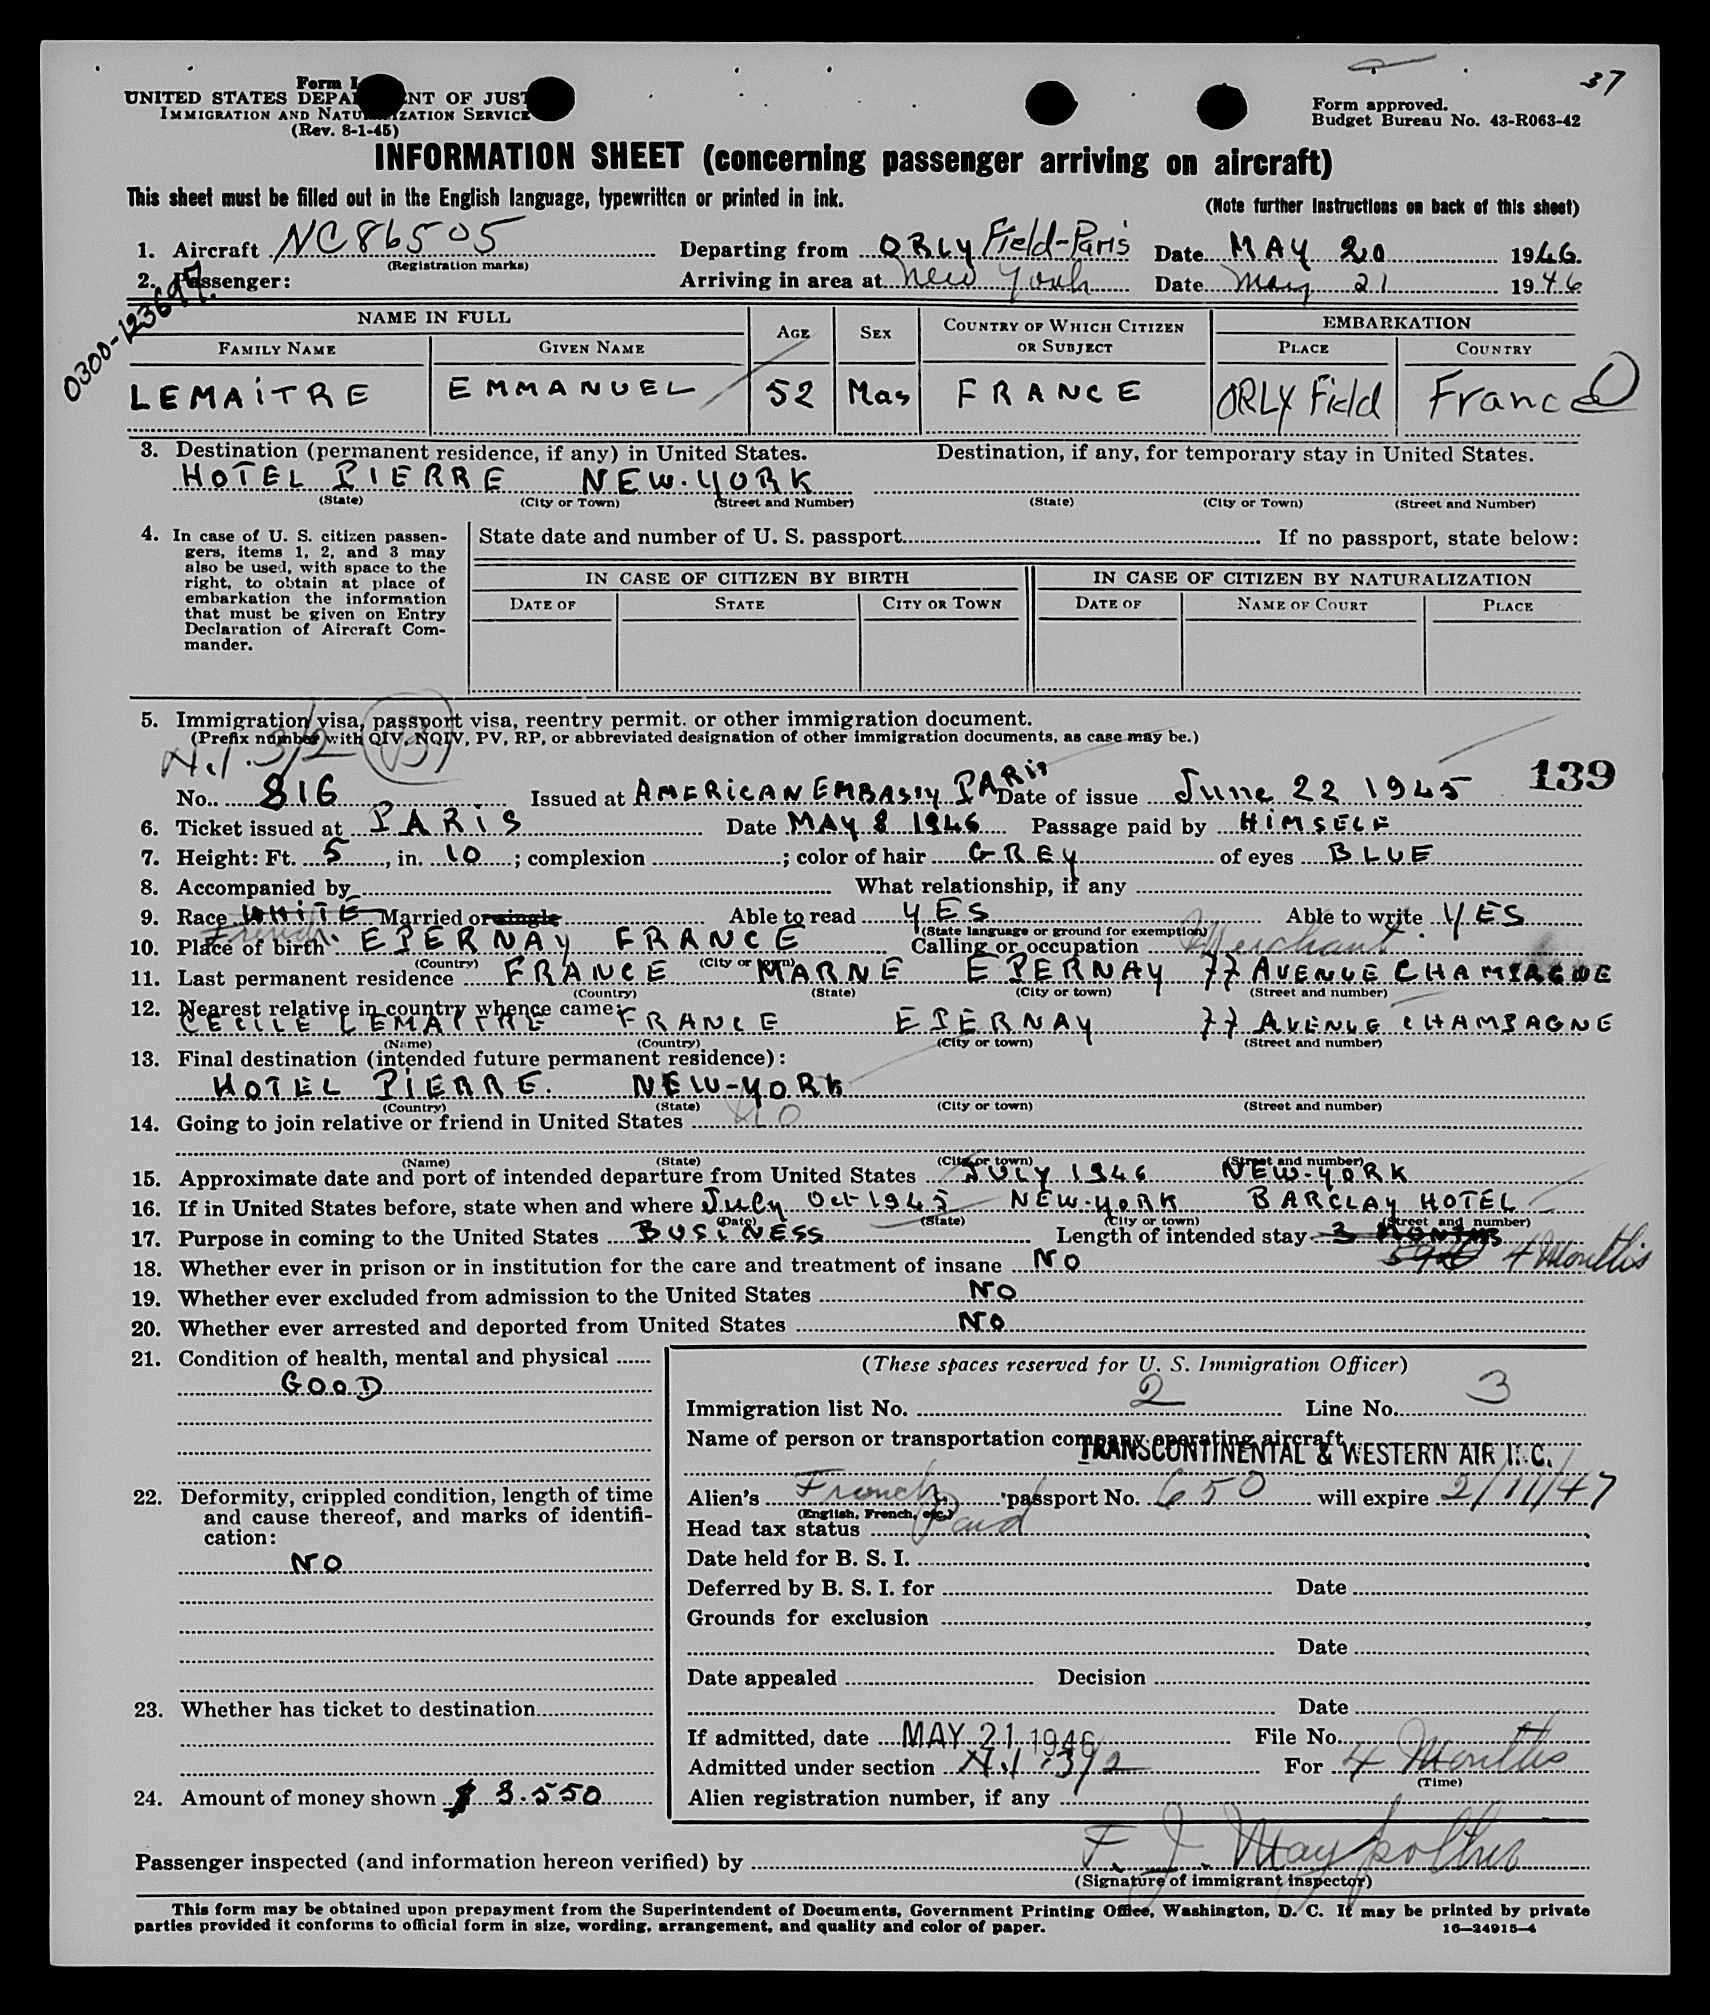 37
Form I
UNITED STATES DEPA NT OF JUST
IMMIGRATION AND NATU IZATION SERVICE
(Rev. 8-1-45)
Form approved.
Budget Bureau No. 43-R063-42
INFORMATION SHEET (concerning passenger arriving on aircraft)
This sheet must be filled out in the English language, typewritten or printed in ink.
(Note further instructions on back of this sheet)
1. Aircraft NC86505 Departing from ORLY Field-Paris Date MAY 20 1946.
(Registration marks)
2. Passenger: Arriving in area at New York Date May 21 1946
0300-123697.
NAME IN FULL AGE SEX COUNTRY OF WHICH CITIZEN OR SUBJECT EMBARKATION
FAMILY NAME GIVEN NAME PLACE COUNTRY
LEMAiTRE EMMANUEL 52 Mas FRANCE ORLY Field France
3. Destination (permanent residence, if any) in United States. Destination, if any, for temporary stay in United States.
HOTEL PIERRE NEW-YORK
(State) (City or Town) (Street and Number) (State) (City or Town) (Street and Number)
4. In case of U. S. citizen passen-
gers, items 1, 2, and 3 may
also be used, with space to the
right, to obtain at place of
embarkation the information
that must be given on Entry
Declaration of Aircraft Com-
mander.
State date and number of U. S. passport If no passport, state below:
IN CASE OF CITIZEN BY BIRTH IN CASE OF CITIZEN BY NATURALIZATION
DATE OF STATE CITY OR TOWN DATE OF NAME OF COURT PLACE
5. Immigration visa, passport visa, reentry permit. or other immigration document.
(Prefix number with QIV, NQIV, PV, RP, or abbreviated designation of other immigration documents, as case may be.)
3/2
139
No. 816 Issued at AMERICAN EMBASSY PARis Date of issue June 22 1945
6. Ticket issued at PARIS Date MAY 8 1946 Passage paid by HIMSELF
7. Height: Ft. 5, in. 10; complexion ; color of hair GREY of eyes BLUE
8. Accompanied by What relationship, if any
9. Race WHITE Married or single Able to read YES Able to write YES
French. (State language or ground for exemption)
10. Place of birth EPERNAY FRANCE Calling or occupation Merchant
(Country) (City or town)
11. Last permanent residence FRANCE MARNE EPERNAY 77 AVENUE CHAMPAGNE
(Country) (State) (City or town) (Street and number)
12. Nearest relative in country whence came:
CECILE LEMAITRE FRANCE EPERNAY 77 AVENUE CHAMPAGNE
(Name) (Country) (City or town) (Street and number)
13. Final destination (intended future permanent residence):
HOTEL PIERRE. NEW-YORK
(Country) (State) (City or town) (Street and number)
14. Going to join relative or friend in United States NO
(Name) (State) (City or town) (Street and number)
15. Approximate date and port of intended departure from United States JULY 1946 NEW-YORK
16. If in United States before, state when and where July Oct 1945 NEW-YORK BARCLAY HOTEL
(Date) (State) (City or town) (Street and number)
17. Purpose in coming to the United States BUSINESS Length of intended stay 3 MONTHS
4 Months
18. Whether ever in prison or in institution for the care and treatment of insane NO
19. Whether ever excluded from admission to the United States NO
20. Whether ever arrested and deported from United States NO
21. Condition of health, mental and physical
GOOD
22. Deformity, crippled condition, length of time
and cause thereof, and marks of identifi-
cation:
NO
23. Whether has ticket to destination
24. Amount of money shown $ 3.550
(These spaces reserved for U. S. Immigration Officer)
Immigration list No. 2 Line No. 3
Name of person or transportation company operating aircraft
TRANSCONTINENTAL & WESTERN AIR INC.
Alien's French passport No. 650 will expire 2/11/47
(English, French, etc.)
Head tax status Paid
Date held for B. S. I.
Deferred by B. S. I. for Date
Grounds for exclusion
Date
Date appealed Decision
Date
If admitted, date MAY 21 1946 File No.
Admitted under section 3/2 For 4 Months
(Time)
Alien registration number, if any
Passenger inspected (and information hereon verified) by F. J.
(Signature of immigrant inspector)
This form may be obtained upon prepayment from the Superintendent of Documents, Government Printing Office, Washington, D. C. It may be printed by private
parties provided it conforms to official form in size, wording, arrangement, and quality and color of paper. 16—24915-4